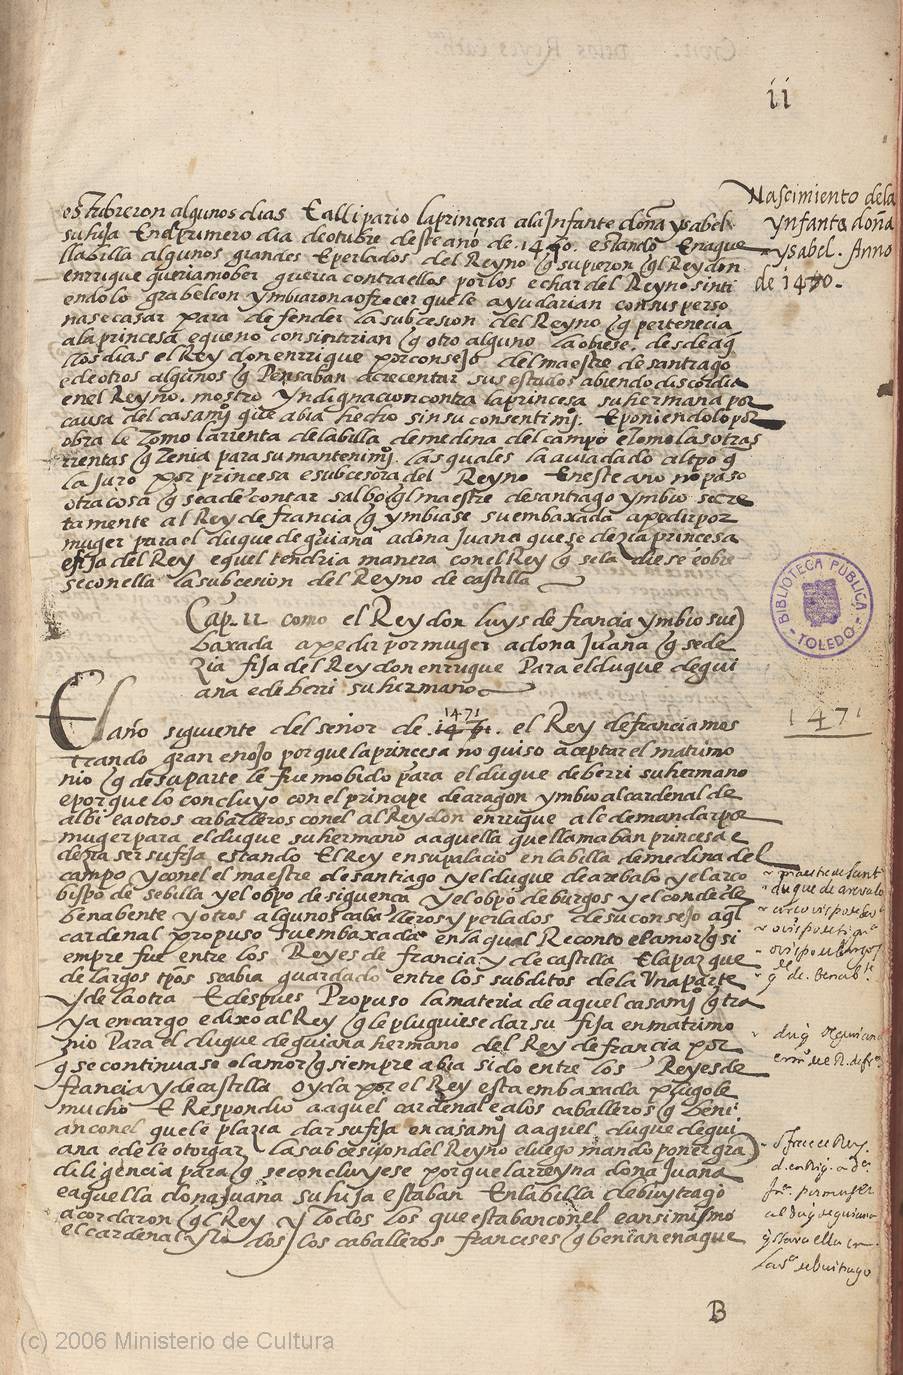 ii
estubieron algunos dias E alli pario la princesa ala Infante doña ysabel
su fija En el primero dia de otubre deste año de .1470. estando En aque
lla billa algunos grandes E perlados del Reyno q̃ supieron q̃l Rey don
enrrique queria mober guerra contra ellos por los echar del Reyno sinti
endolo grabe con ymbiaron a ofrecer que le ayudarian con sus perso
nas e casar para defender la subcesion del Reyno q̃ pertenecia
ala princesa e que no consintirian q̃ otro alguno la obiese. desde aq̃
llos dias el Rey don enrrique por consejo del maestre de santiago
e de otros algunos q̃ Pensaban acrecentar sus estados abiendo discordia
en el Reyno. mostro yndignacion contra la princesa su hermana por
causa del casamj̃ que abia hecho sin su consentimj̃. E poniendolo por
obra le tomo la rrienta dela billa de medina del campo e tomo las otras
rrentas q̃ tenia para su mantenimj̃. las quales la avia dado al tp̃o q̃
la juro por princesa e subcesora del Reyno En este año no paso
otra cosa q̃ sea de contar salbo q̃l maestre de santiago ymbio secre
tamente al Rey de francia q̃ ymbiase su embaxada a pedir por
muger para el duque de guiana a dona Juana que se dezia princesa
e fija del Rey e quel tendria manera con el Rey q̃ se la diese e obie
se con ella la subcesion del Reyno de castilla
Cap. II como el Rey don luys de francia ymbio su e)
baxada a pedir por muger a dona Juana q̃ se de
zia fija del Rey don enrrique Para el duque de gui
ana e de berri su hermano
El año siguiente del señor de .1471. el Rey de francia mos
trando gran enojo porque la princesa no quiso aceptar el matrimo
nio q̃ de su parte le fue mobido para el duque de berri su hermano
e porque lo concluyo con el principe de aragon ymbio al cardenal de
albi e a otros caballeros con el al Rey don enrrique a le demandar por
muger para el duque su hermano a aquella que llamaban princesa e
dezia ser su fija estando El Rey en su palacio en la billa de medina del
campo y con el el maestre de santiago y el duque de arebalo y el arco
bispo de sebilla y el obp̃o de siguenca y el obp̃o de burgos y el conde de
benabente y otros algunos caballeros y perlados de su consejo aq̃l
cardenal propuso su embaxada en la qual Reconto el amor q̃ si
empre fue entre los Reyes de francia y de castilla E la paz que
de largos tp̃os se abia guardado entre los subditos de la Una parte
y de la otra E despues Propuso la materia de aquel casamj̃ q̃ tra
ya en cargo e dixo al Rey q̃ le pluguiese dar su fija en matrimo
nio Para el duque de guiana hermano del Rey de francia por
q̃ se continuase el amor q̃ siempre abia sido entre los Reyes de
francia y de castilla oyda por el Rey esta embaxada plugole
mucho E Respondio a aquel cardenal e a los caballeros q̃ beni
an con el que le plazia dar su fija en casamj̃ a aquel duque de gui
ana e de le otorgar la subcesion del Reyno e luego mando poner grã)
diligencia para q̃ se concluyese porque la rreyna dona Juana
e aquella dona juana su hija estaban En la billa de buytrago
acordaron q̃l Rey y todos los que estaban con el e ansimismo
el cardenal y todos los caballeros franceses q̃ benian en aque
Nascimiento dela
ynfanta doña
ysabel. Anno
de 1470.
BIBLIOTECA PÚBLICA
TOLEDO
1471
duque de arevalo
B
(c) 2006 Ministerio de Cultura